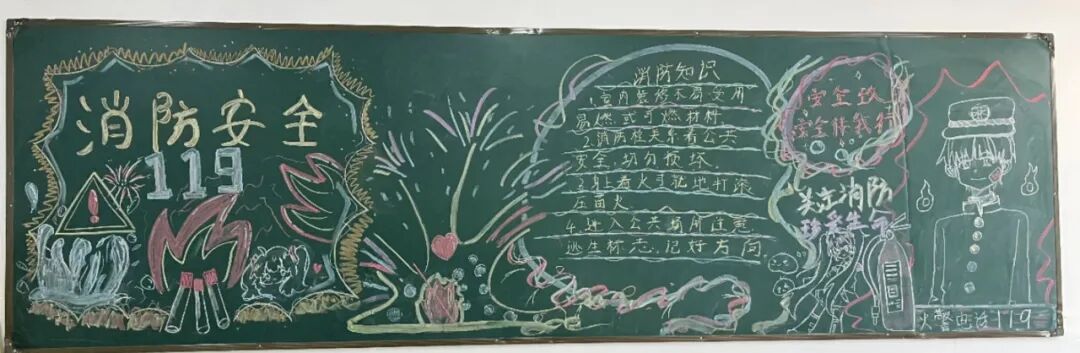 消防安全
119
消防知识
1.室内装修不需使用
易燃或可燃材料
2.消防栓关系着公共
安全,切勿损坏.
3.身着火可就地打滚
压面火.
4.进入公共场所注意
逃生标志,记好方向
安全
安全伴我行
关注消防
珍爱生命
火警电话119